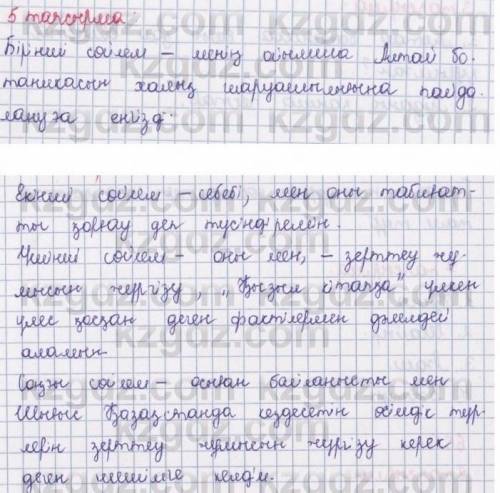 5 тапсырма
Бірінші сөйлем – менің ойымша Алтай бо-
таникасын халық шаруашылығына пайда-
лануға енгізді.
Екінші сөйлем – себебі, мен оны табиғат-
ты қорғау деп түсіндіремін.
Үшінші сөйлем – оны мен, – зерттеу жұ-
мысын жүргізу, „Қызыл кітапқа" үлкен
үлес қосқан деген фактілермен дәлелдей
аламын.
Соңғы сөйлем – осыған байланысты мен
Шығыс Қазақстанда кездесетін өсімдік түр-
лерін зерттеу жұмысын жүргізу керек
деген шешімге келдім.
kzgdz.com